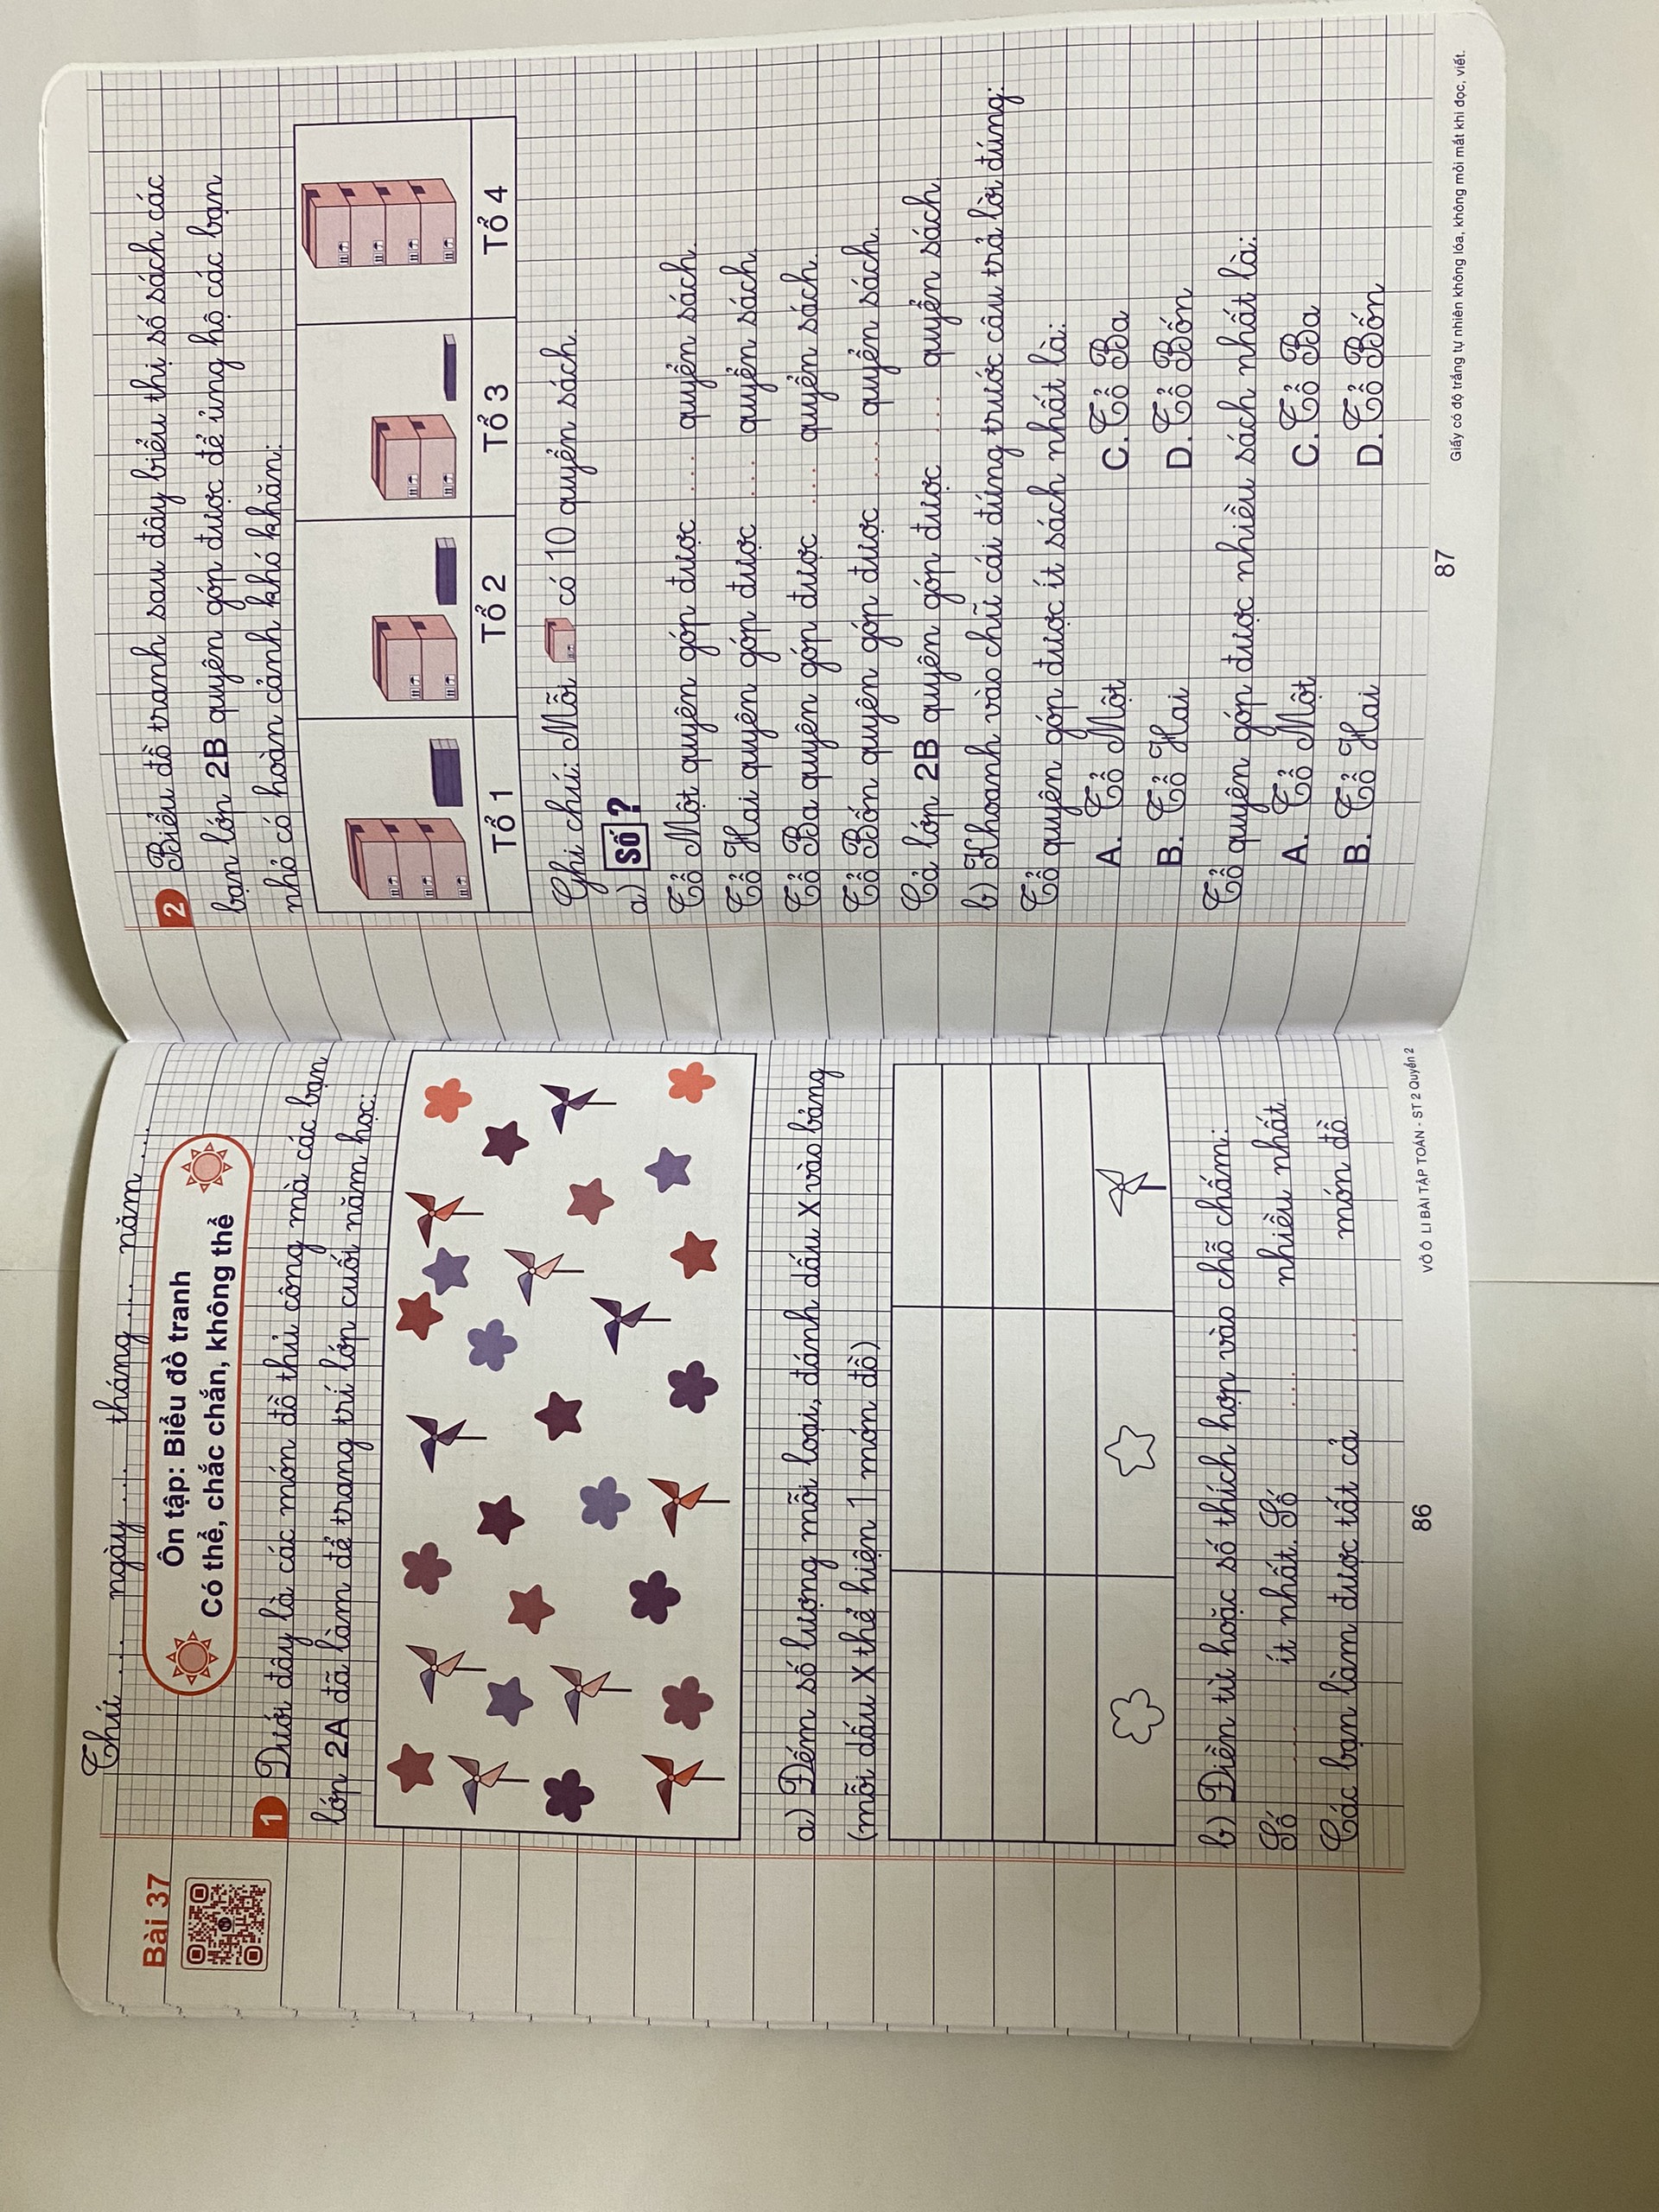 Thứ ... ngày ... tháng ... năm ...
Bài 37
Ôn tập: Biểu đồ tranh
Có thể, chắc chắn, không thể
1 Dưới đây là các món đồ thủ công mà các bạn
lớp 2A đã làm để trang trí lớp cuối năm học:
a) Đếm số lượng mỗi loại, đánh dấu X vào bảng
(mỗi dấu X thể hiện 1 món đồ)
b) Điền từ hoặc số thích hợp vào chỗ chấm:
Số ..... ít nhất. Số ..... nhiều nhất.
Các bạn làm được tất cả ..... món đồ.
86
VỞ Ô LI BÀI TẬP TOÁN - ST 2 Quyển 2
2 Biểu đồ tranh sau đây biểu thị số sách các
bạn lớp 2B quyên góp được để ủng hộ các bạn
nhỏ có hoàn cảnh khó khăn:
Tổ 1 Tổ 2 Tổ 3 Tổ 4
Ghi chú: Mỗi có 10 quyển sách.
a) Số ?
Tổ Một quyên góp được .... quyển sách.
Tổ Hai quyên góp được .... quyển sách.
Tổ Ba quyên góp được .... quyển sách.
Tổ Bốn quyên góp được .... quyển sách.
Cả lớp 2B quyên góp được .... quyển sách.
b) Khoanh vào chữ cái đứng trước câu trả lời đúng:
Tổ quyên góp được ít sách nhất là:
A. Tổ Một C. Tổ Ba
B. Tổ Hai D. Tổ Bốn
Tổ quyên góp được nhiều sách nhất là:
A. Tổ Một C. Tổ Ba
B. Tổ Hai D. Tổ Bốn
87
Giấy có độ trắng tự nhiên không lóa, không mỏi mắt khi đọc, viết.